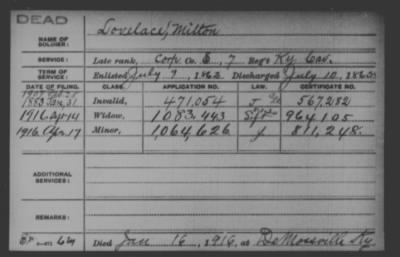 DEAD
NAME OF SOLDIER: Lovelace, Milton
SERVICE: Late rank, Corp Co. E, 7 Reg't Ky Cav.
TERM OF SERVICE: Enlisted July 9, 1862 Discharged July 10, 1865
DATE OF FILING. CLASS. APPLICATION NO. LAW. CERTIFICATE NO.
1883 Jan 31 Invalid, 471,054 567,282
1916 Apr 14 Widow, 1,083,443 964,105
1916 Apr 17 Minor, 1,064,626 811,248
ADDITIONAL SERVICES:
REMARKS:
Died Jan 16, 1916, at DeMossville Ky.